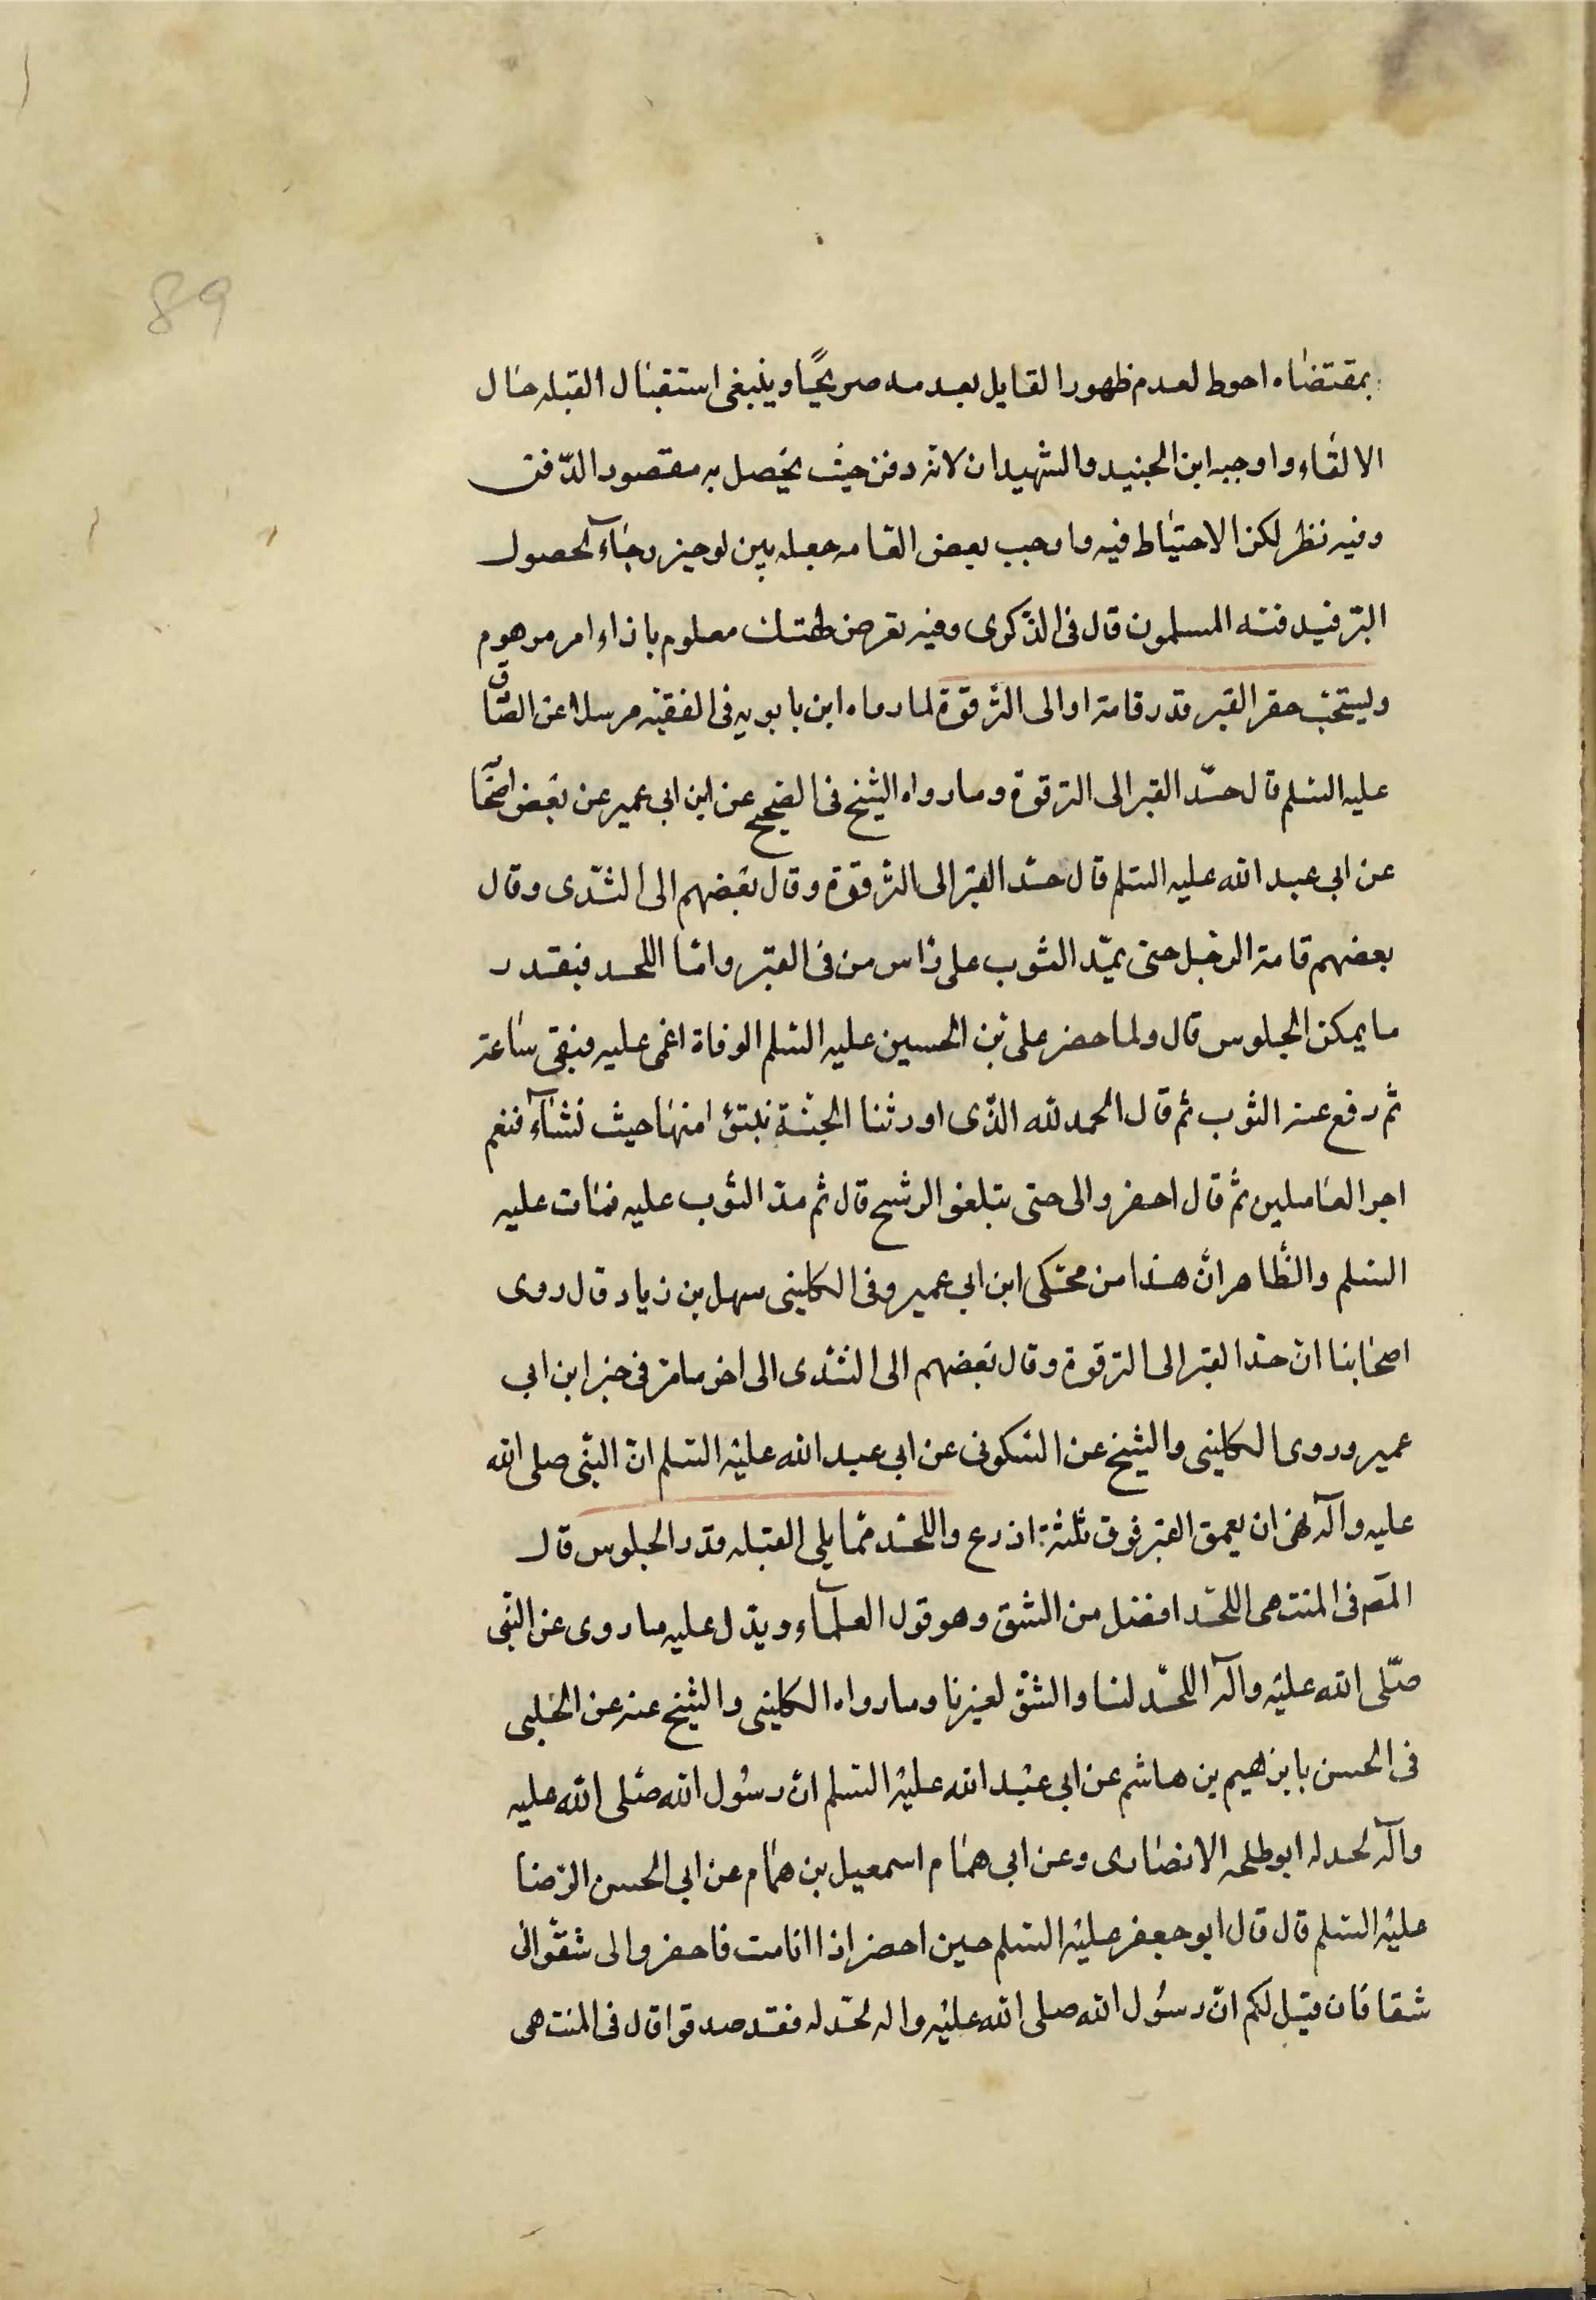 89
بمقتضاه احوط لعدم ظهور القايل بعدمه صريحًا وينبغى استقبال القبله حال
الالقاء واوجبه ابن الجنيد والشهيدان لانه دفن حيث يحصل به مقصود الدّفن
وفيه نظر لكن الاحتياط فيه واوجب بعض العامه جعله بين لوحين رجآء لحصول
البرّ فيدفنه المسلمون قال فى الذّكرى وفيه تعرض لهتك معلوم بازاء امر موهوم
ويستحبّ حفر القبر قدر قامة او الى الترقوة لما رواه ابن بابويه فى الفقيه مرسلا عن الصّاق
عليه السّلم قال حدّ القبر الى الترقوة وما رواه الشيخ فى الصّحيح عن ابن ابى عمير عن بعض اصحا
عن ابى عبد الله عليه السّلم قال حدّ القبر الى الترقوة وقال بعضهم الى الثّدى وقال
بعضهم قامة الرّجل حتى يمدّ الثوب على رأس من فى القبر وامّا اللحد فبقدر
ما يمكن الجلوس قال ولما حضر على بن الحسين عليه السّلم الوفاة اغمى عليه فبقى ساعة
ثم رفع عنه الثوب ثم قال الحمد لله الذّى اورثنا الجنّة نتبوّء امنها حيث نشآء فنعم
اجر العاملين ثمّ قال احفروا لى حتى تبلغوا الرشح قال ثم مدّ الثوب عليه فمات عليه
السّلم والظّاهر انّ هذا من محكى ابن ابى عمير وفى الكلينى سهل بن زياد قال روى
اصحابنا انّ حدّ القبر الى الترقوة وقال بعضهم الى الثّدى الى اخر ما مرّ فى خبر ابن ابى
عمير وروى الكلينى والشيخ عن السّكونى عن ابى عبد الله عليه السّلم انّ النّبى صلى الله
عليه وآله نهى ان يعمق القبر فوق ثلثة اذرع واللحد ممّا يلى القبله قدر الجلوس قال
المصّ فى المنتهى اللحّد افضل من الشق وهو قول العلمآء ويدّل عليه ما روى عن النّبى
صلّى الله عليه وآله اللحّد لنا والشق لغيرنا وما رواه الكلينى والشيخ عنه عن الحلبى
فى الحسن بابرهيم بن هاشم عن ابى عبد الله عليه السّلم انّ رسول الله صلّى الله عليه
وآله لحد له ابو طلحه الانصارى وعن ابى همّام اسمعيل بن همّام عن ابى الحسن الرّضا
عليه السّلم قال قال ابو جعفر عليه السّلم حين احضر اذا انا مت فاحفروا لى شقّوا لى
شقا فان قيل لكم انّ رسول الله صلى الله عليه واله لحّد له فقد صدقوا قال فى المنتهى